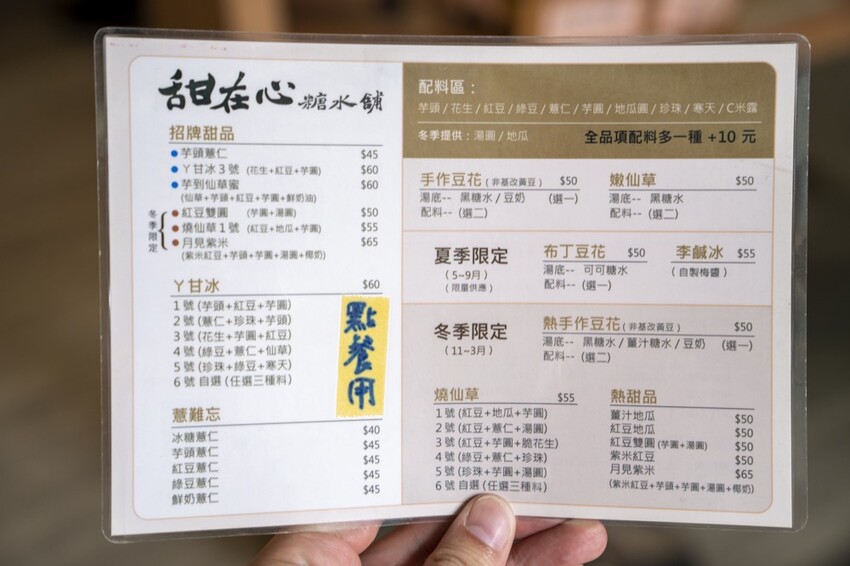 甜在心糖水舖
招牌甜品
芋頭薏仁 $45
ㄚ甘冰3號 (花生+紅豆+芋圓) $60
芋到仙草蜜 $60
(仙草+芋頭+紅豆+芋圓+鮮奶油)
冬季限定
紅豆雙圓 (芋圓+湯圓) $50
燒仙草1號 (紅豆+地瓜+芋圓) $55
月見紫米 $65
(紫米紅豆+芋頭+芋圓+湯圓+椰奶)
ㄚ甘冰 $60
1號 (芋頭+紅豆+芋圓)
2號 (薏仁+珍珠+芋頭)
3號 (花生+芋圓+紅豆)
4號 (綠豆+薏仁+仙草)
5號 (珍珠+綠豆+寒天)
6號 自選 (任選三種料)
點餐用
薏難忘
冰糖薏仁 $40
芋頭薏仁 $45
紅豆薏仁 $45
綠豆薏仁 $45
鮮奶薏仁 $45
配料區：
芋頭/花生/紅豆/綠豆/薏仁/芋圓/地瓜圓/珍珠/寒天/C米露
冬季提供：湯圓/地瓜 全品項配料多一種 +10 元
手作豆花 (非基改黃豆) $50
湯底-- 黑糖水/豆奶 (選一)
配料-- (選二)
嫩仙草 $50
湯底-- 黑糖水
配料-- (選二)
夏季限定
(5~9月)
(限量供應)
布丁豆花 $50
湯底-- 可可糖水
配料-- (選一)
李鹹冰 $55
(自製梅醬)
冬季限定
(11~3月)
熱手作豆花 (非基改黃豆) $50
湯底-- 黑糖水/薑汁糖水/豆奶 (選一)
配料-- (選二)
燒仙草 $55
1號 (紅豆+地瓜+芋圓)
2號 (紅豆+薏仁+湯圓)
3號 (紅豆+芋圓+脆花生)
4號 (綠豆+薏仁+珍珠)
5號 (珍珠+芋圓+湯圓)
6號 自選 (任選三種料)
熱甜品
薑汁地瓜 $50
紅豆地瓜 $50
紅豆雙圓 (芋圓+湯圓) $50
紫米紅豆 $50
月見紫米 $65
(紫米紅豆+芋頭+芋圓+湯圓+椰奶)